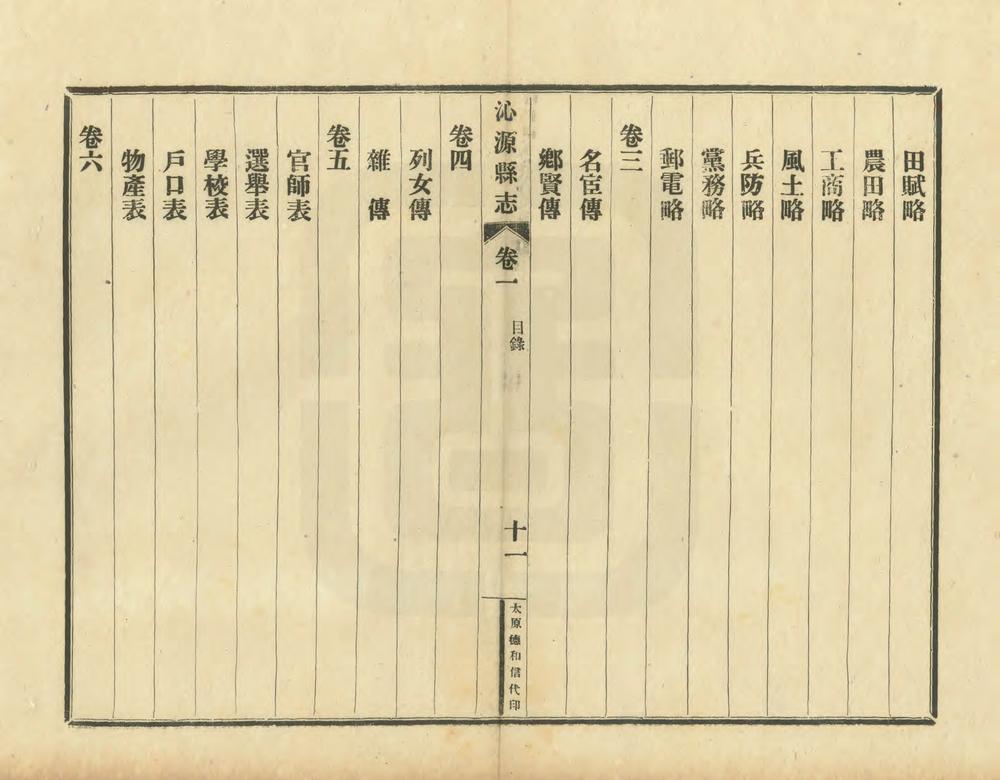 田賦略
農田略
工商略
風土略
兵防略
黨務略
郵電略
卷三
名宦傳
鄉賢傳
沁源縣志
卷一
目錄
十一
太原德和信代印
卷四
列女傳
雜傳
卷五
官師表
選舉表
學校表
戶口表
物產表
卷六